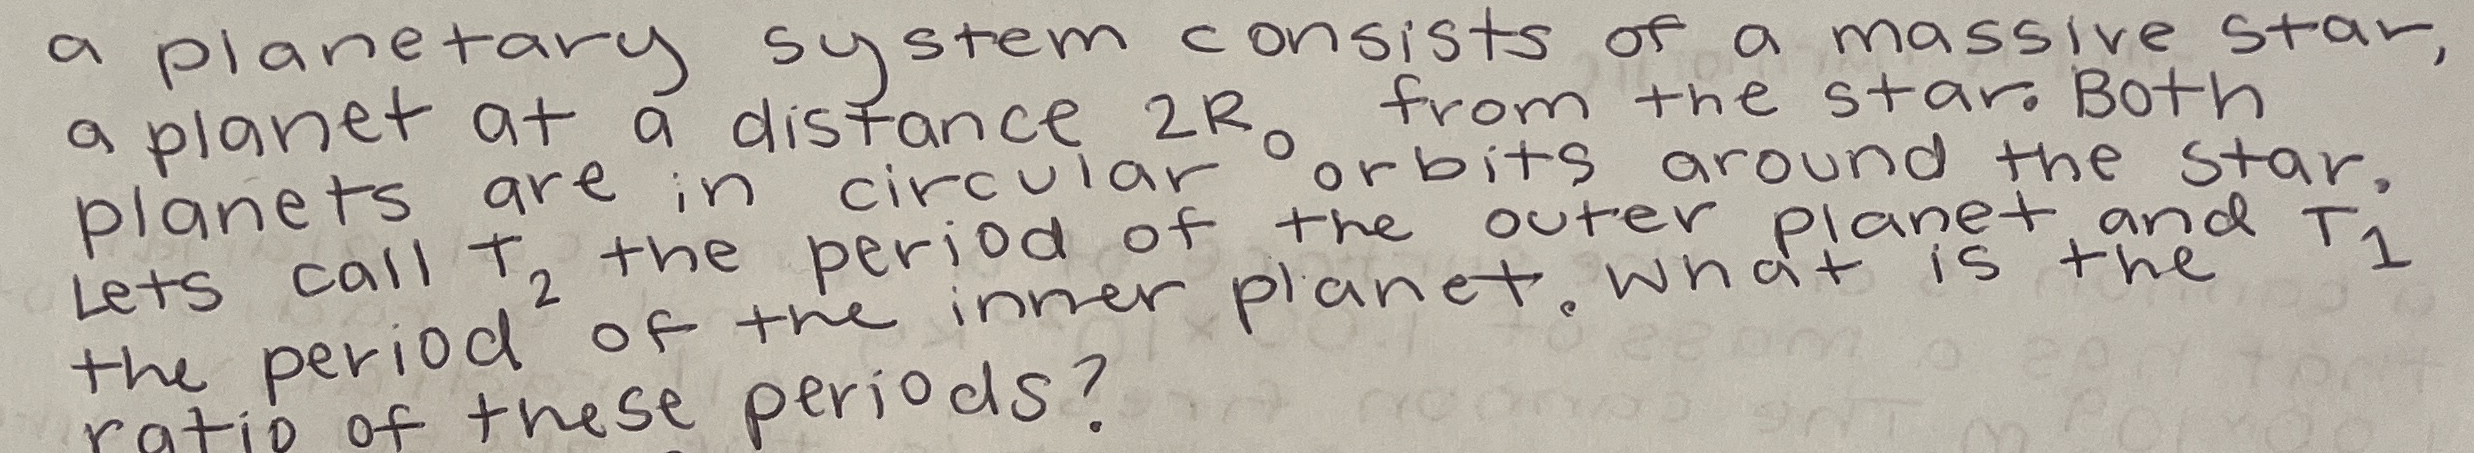 a planetary system consists of a massive star,
a planet at a distance 2R₀ from the star. Both
planets are in circular orbits around the star.
Lets call T₂ the period of the outer planet and T₁
the period of the inner planet. What is the
ratio of these periods?